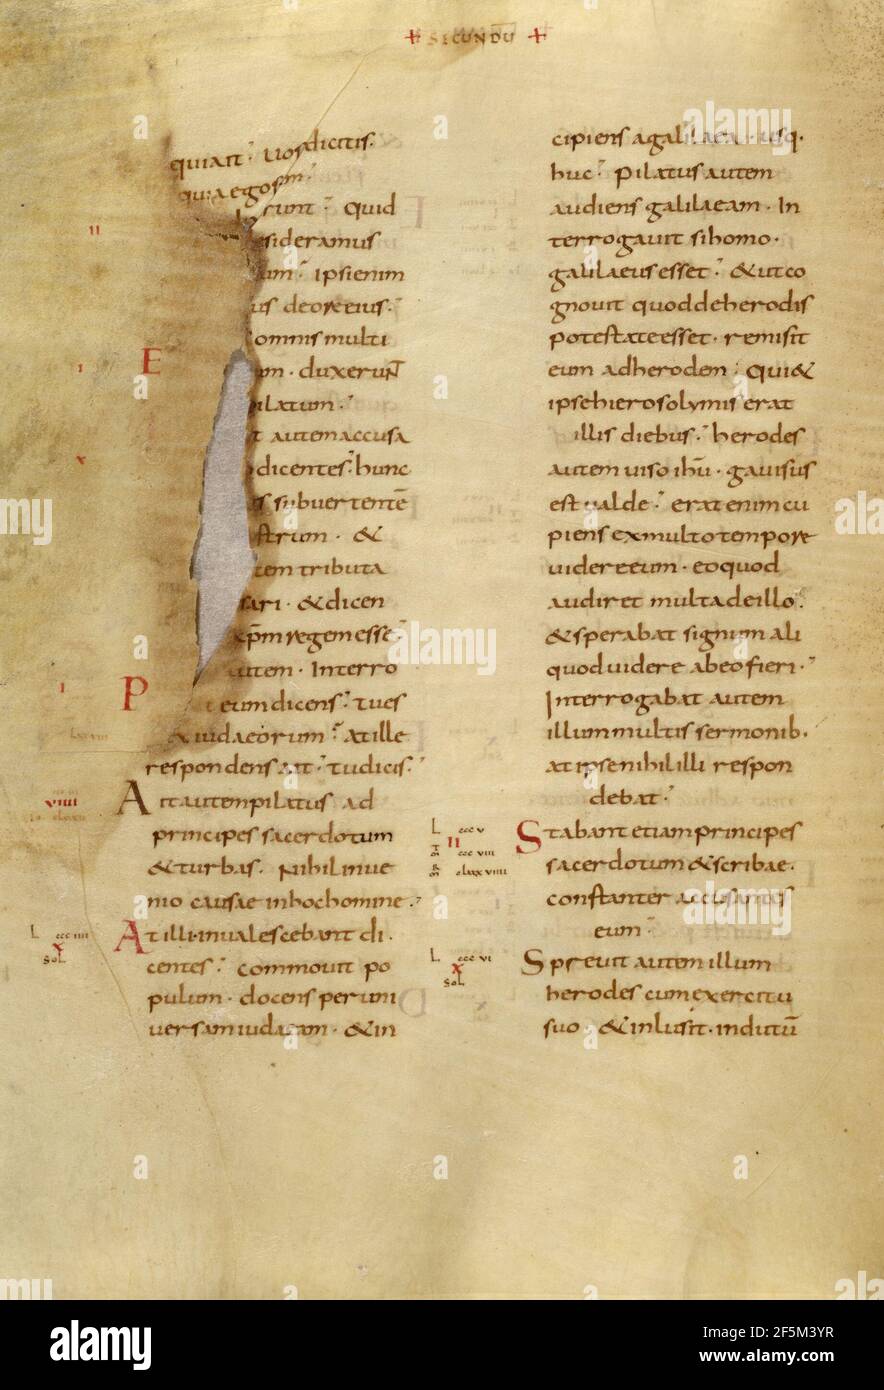 + SECUNDU +
quiait · Uos dicitis ·
quia ego sm̅ ·
cunt · Quid
sideramus
um · Ipsi enim
us de ore eius ·
omnis multi
um · duxerunt
ilatum ·
t autem accusa
dicentes · hunc
subvertente̅
strum · &
tem tributa
ari · & dicen
xp̅m regem esse ·
utem · Interro
II
I
E
X
I
P
eum dicens · tu es
x iudaeorum · at ille
respondens ait · tu dicis ·
VIIII
Ait autem pilatus ad
principes sacerdotum
& turbas · Nihil inue
nio causae in hoc homine ·
L cccIIII
X
Sol
At illi inualescebant di ·
centes · commouit po
pulum · docens per uni
uersam iudaeam · & in
cipiens a galilaea · usq ·
huc · Pilatus autem
audiens galilaeam · In
terrogauit si homo ·
galilaeus esset · & ut co
gnouit quod de herodis
potestate esset · remisit
eum ad herodem · Qui &
ipse hierosolymis erat
illis diebus · herodes
autem uiso ihu̅ · gauisus
est ualde · erat enim cu
piens ex multo tempore
uidere eum · eo quod
audiret multa de illo ·
& sperabat signum ali
quod uidere ab eo fieri ·
Interrogabat autem
illum multis sermonib ·
at ipse nihil illi respon
debat ·
L cccV
II
cccVIII
clxxVIIII
Stabant etiam principes
sacerdotum & scribae ·
constanter accusantes
eum ·
L cccVI
X
Sol
Spreuit autem illum
herodes cum exercitu
suo · & inlusit · indutu̅
alamy
Image ID: 2F5M3YR
www.alamy.com